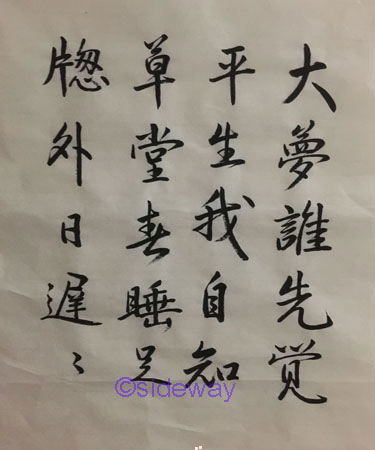 大夢誰先覚
平生我自知
草堂春睡足
牎外日遲〻
©sideway